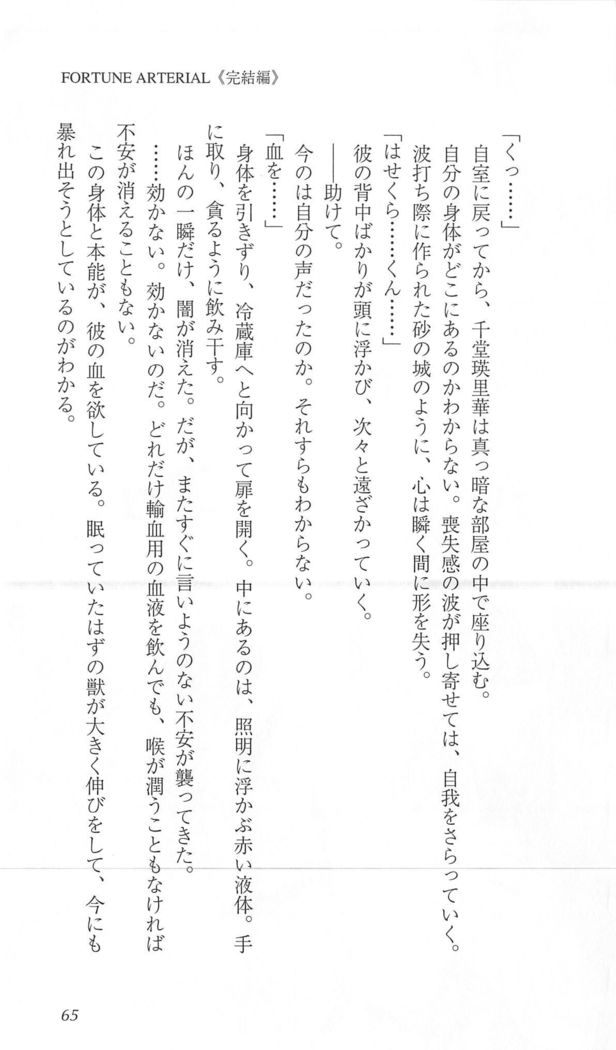 FORTUNE ARTERIAL《完結編》
「くっ………」
自室に戻ってから、千堂瑛里華は真っ暗な部屋の中で座り込む。
自分の身体がどこにあるのかわからない。喪失感の波が押し寄せては、自我をさらっていく。
波打ち際に作られた砂の城のように、心は瞬く間に形を失う。
「はせくら……くん………」
彼の背中ばかりが頭に浮かび、次々と遠ざかっていく。
――助けて。
今のは自分の声だったのか。それすらもわからない。
「血を……」
身体を引きずり、冷蔵庫へと向かって扉を開く。中にあるのは、照明に浮かぶ赤い液体。手
に取り、貪るように飲み干す。
ほんの一瞬だけ、闇が消えた。だが、またすぐに言いようのない不安が襲ってきた。
……効かない。効かないのだ。どれだけ輸血用の血液を飲んでも、喉が潤うこともなければ
不安が消えることもない。
この身体と本能が、彼の血を欲している。眠っていたはずの獣が大きく伸びをして、今にも
暴れ出そうとしているのがわかる。
65